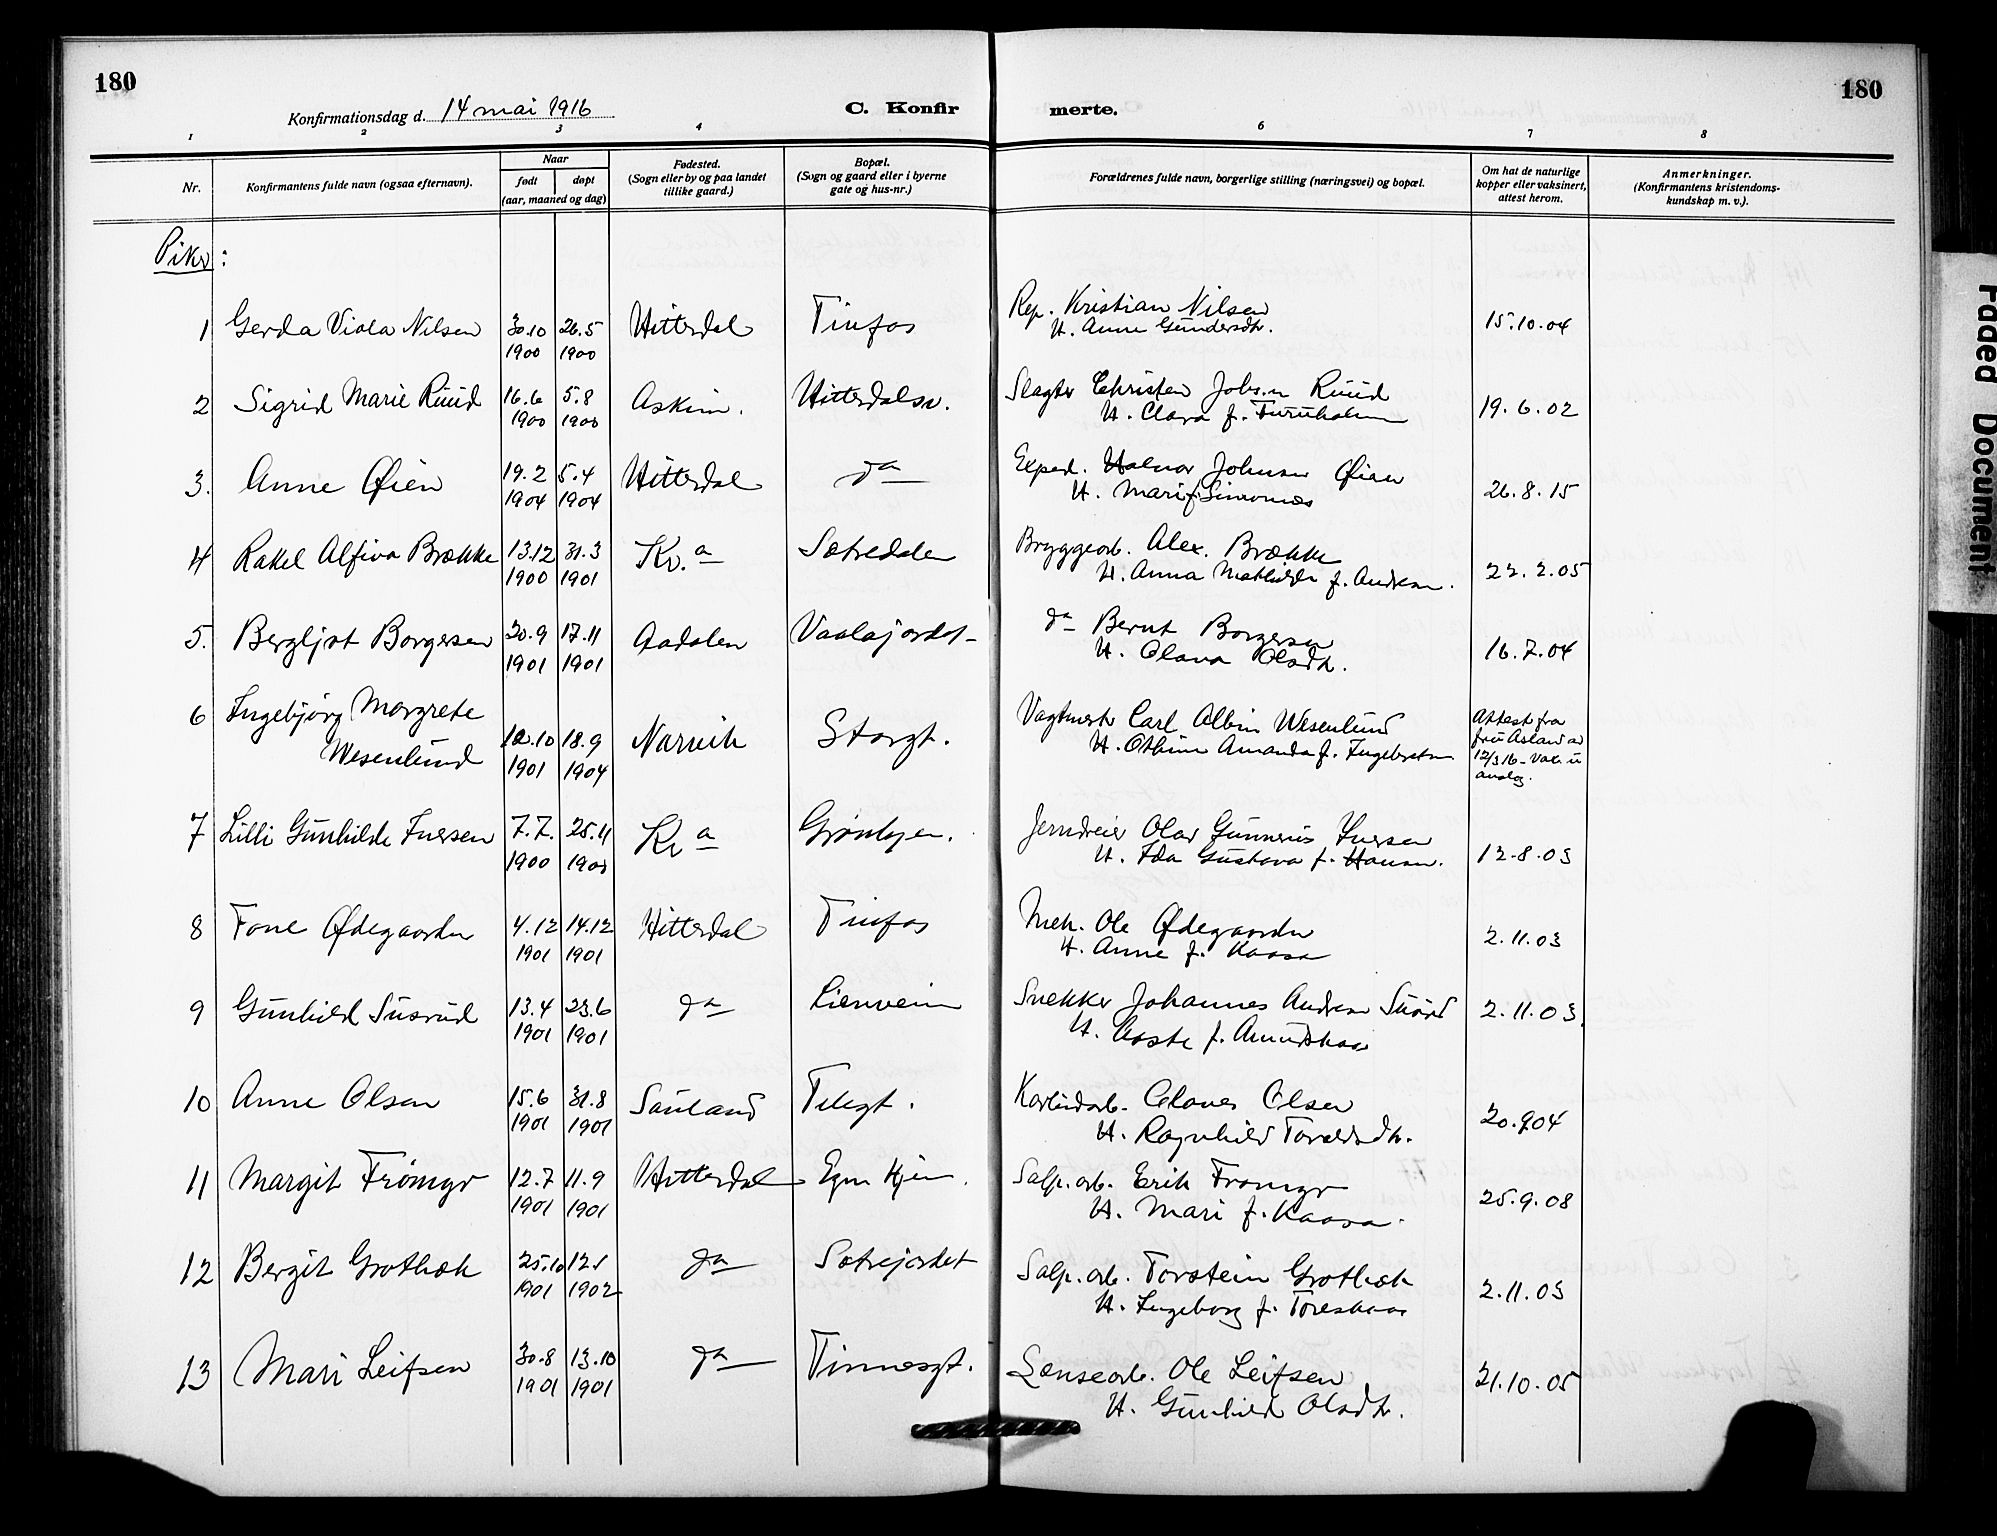 180
180
Konfirmationsdag d. 14 mai 1916
C. Konfir
merte.
1 2 3 4 6 7 8
Nr.
Konfirmantens fulde navn (ogsaa efternavn).
Naar
født døpt
(aar, maaned og dag)
Fødested.
(Sogn eller by og paa landet
tillike gaard.)
Bopæl.
(Sogn og gaard eller i byerne
gate og hus-nr.)
Forældrenes fulde navn, borgerlige stilling (næringsvei) og bopæl.
Om hat de naturlige
kopper eller vaksinert,
attest herom.
Anmerkninger.
(Konfirmantens kristendoms-
kundskap m. v.).
Piker:
1 Gerda Viola Nilsen 30.10 26.5 Hitterdal Tinfos Rep. Kristian Nilsen 15.10.04
1900 1900 H. Anne Gundersdtr.
2 Sigrid Marie Ruud 16.6 5.8 Askim. Hitterdalsv. Slagter Christen Johs.n Ruud 19.6.02
1900 1900 H. Clara f. Furuholmen
3. Anne Øien 19.2 5.4 Hitterdal do Exped. Halvor Johnsen Øien 26.8.15
1904 1904 H. Mari f. Simones
4 Rakel Alfiva Brække 13.12 31.3 Kr.a Sætredalen Bryggearb. Alex. Brække 22.2.05
1900 1901 H. Anna Mathilde f. Andersen.
5. Bergljot Borgersen 20.9 17.11 Aadalen Vaalajordet do Bernt Borgersen 16.7.04
1901 1901 H. Olava Olsdtr.
6 Ingebjørg Margrete
Wesenlund 10.10 18.9 Narvik Storgt. Vagtmester Carl Albin Wesenlund Attest fra
1901 1904 H. Othine Amanda f. Ingebretsen fru Asland av
12/5 16 - vax. u
anslag.
7 Lilli Gunhilde Iversen 7.7. 25.11 Kra Grønbyen. Jerndreier Olav Gunnerius Iversen 12.8.03
1900 1900 H. Ida Gustava f. Hansen.
8 Tone Ødegaarden 4.12 14.12 Hitterdal Tinfos Mek. Ole Ødegaarden 2.11.03
1901 1901 H. Anne f. Kaasa
9 Gunhild Susrud 13.4 23.6 do Lienveien Snekker Johannes Andersen 2.11.03.
1901 1901 H. Aaste f. Amundskaas
10 Anne Olsen 15.6 31.8 Sauland Telegt. Karbidarb. Olaves Olsen 20.9.04
1901 1901 H. Ragnhild Toraldsdtr.
11 Margit Frømyr 12.7 11.9 Hitterdal Egne Hjem. Salp. arb. Erik Frømyr 25.9.08
1901 1901 H. Mari f. Kaasa.
12 Bergit Grotbæk 25.10 12.1 do Sætrejordet Salp. arb. Torstein Grotbæk 2.11.03
1901 1902 H. Ingeborg f. Toreskaas
13 Mari Leifsen 30.8 13.10 do Tinnesgt. Lensearb. Ole Leifsen 21.10.05
1901 1901 H. Gunhild Olsdtr.
Faded Document